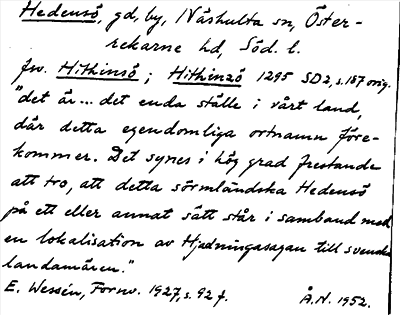 Hedensö, gd, by, Näshulta sn, Öster-
rekarne hd, Söd. l.
fsv. Hithinsö; Hithinzö 1295 SD2, s. 187 orig.
"det är... det enda ställe i vårt land,
där detta egendomliga ortnamn före-
kommer. Det synes i hög grad frestande
att tro, att detta sörmländska Hedensö
på ett eller annat sätt står i samband med
en lokalisation av Hjadningasagan till svenska
landamären."
E. Wessén, Fornv. 1927, s. 92 f. Å.N. 1952.